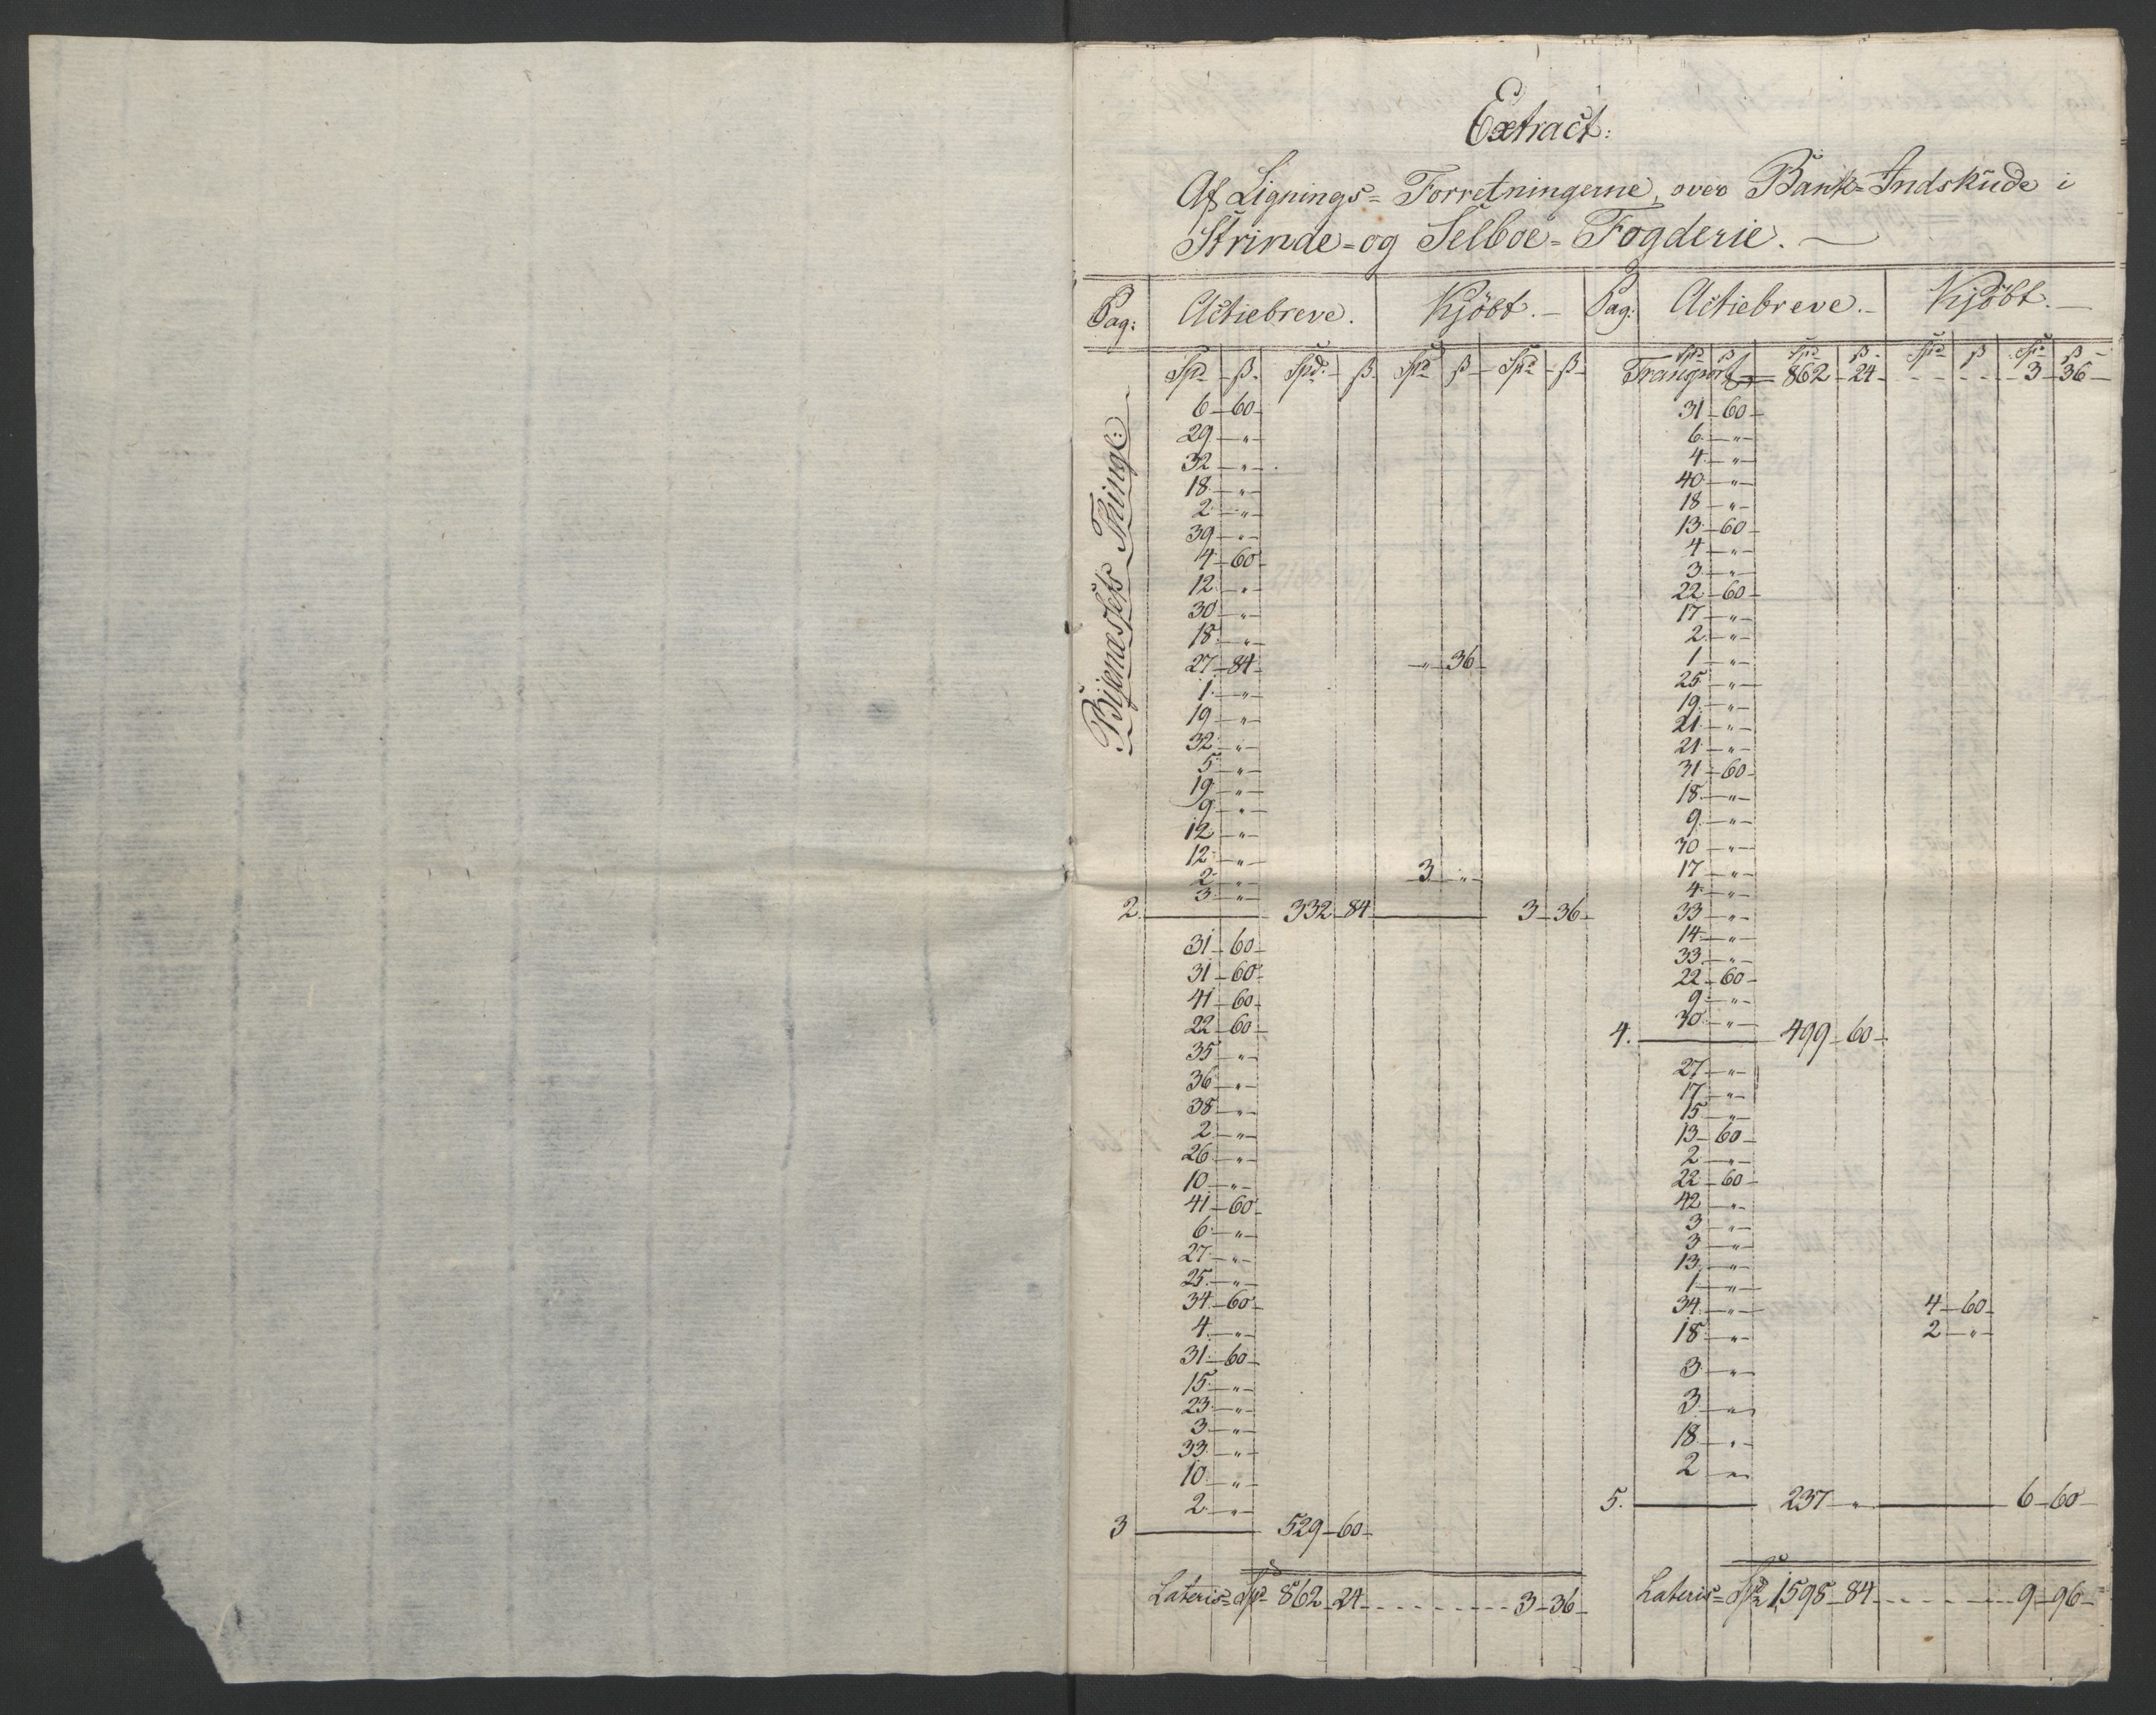 Extract:
Af Lignings= Forretningerne, over Bank=Indskude i
Strinde=og Selboe=Fogderie. —
Pag: Actiebreve. Kjöbt. —
Spd ß. Spd. ß. Spd ß Spd ß
Thingl:
6 – 60 –
29 – " –
32 – " –
18 – " –
2 – " –
39 – " –
4 – 60 –
12 – " –
30 – " –
18 – " –
27 – 84 – " – 36 –
1 – " –
19 – " –
32 – " –
5 – " –
19 – " –
9 – " –
12 – " –
12 – " –
2 – " – 3 – " –
3 – " –
2. 332 – 84 3 – 36 –
31 – 60 –
31 – 60 –
41 – 60 –
22 – 60 –
35 – " –
36 – " –
38 – " –
2 – " –
26 – " –
10 – " –
41 – 60 –
6 – " –
27 – " –
25 – " –
34 – 60 –
4 – " –
31 – 60 –
15 – " –
23 – " –
3 – " –
33 – " –
10 – " –
2 – " –
3 529 – 60 –
Lateris= Spd 862 – 24 – 3 – 36 –
Pag: Actiebreve. – Kjöbt. —
Spd ß Spd ß Spd ß Spd ß
Transport 862 – 24 – 3 – 36 –
31 – 60 –
6 – " –
4 – " –
40 – " –
18 – " –
13 – 60 –
4 – " –
3 – " –
22 – 60 –
17 – " –
2 – " –
1 – " –
25 – " –
19 – " –
21 – " –
21 – " –
31 – 60 –
18 – " –
9 – " –
30 – " –
17 – " –
4 – " –
33 – " –
14 – " –
33 – " –
22 – 60 –
9 – " –
30 – " –
4. 499 – 60 –
27 – " –
17 – " –
15 – " –
13 – 60 –
2 – " –
22 – 60 –
42 – " –
3 – " –
3 – " –
13 – " –
1 – " –
34 – " – 4 – 60 –
18 – " – 2 – " –
3 – " –
3 – " –
18 – " –
2 – " –
5. 237 – " – 6 – 60 –
Lateris= Spd 1598 – 84 – 9 – 96 –